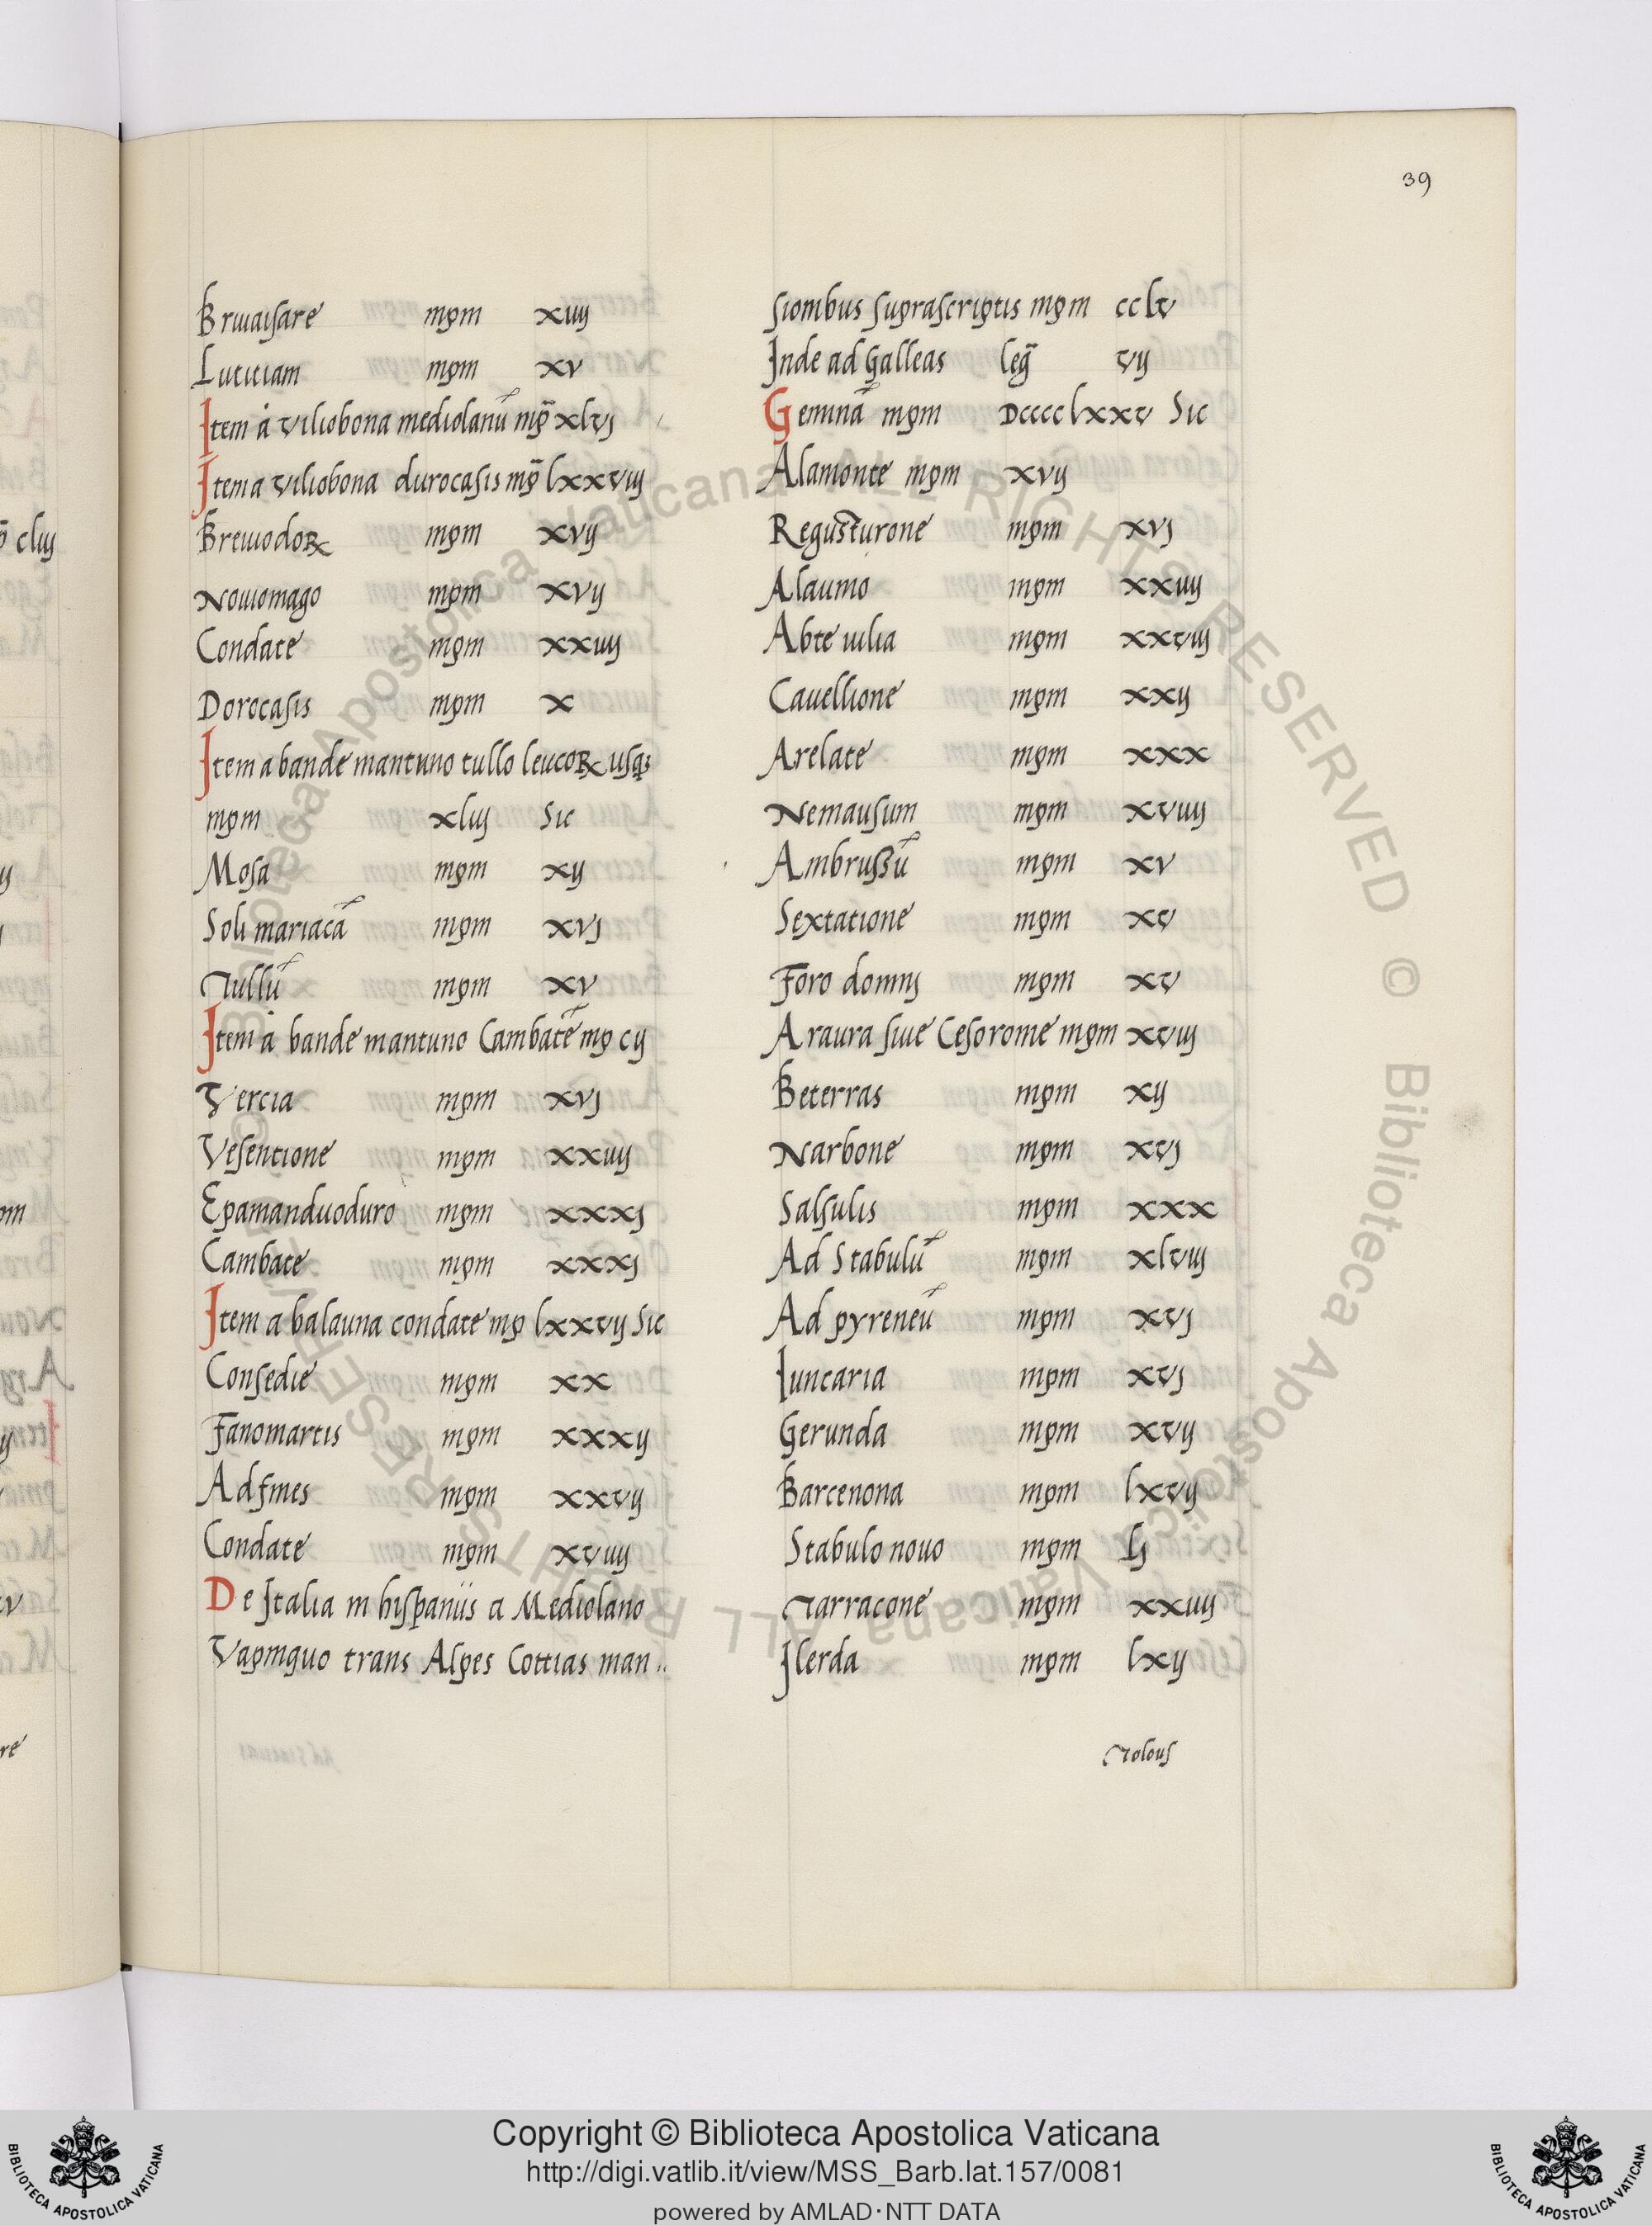 39
Briuaisare mpm xiiij
Lutitiam mpm xv
Item à viliobona mediolanū mp̄ xlvj
Item a viliobona durocasis mp̄ lxxviij
Breuiodoꝝ mpm xvij
Nouiomago mpm xvij
Condate mpm xxiiij
Dorocasis mpm x
Item a bande mantuno tullo leucoꝝ usqꝫ
mpm xliij sic
Mosa mpm xij
Soli mariacā mpm xvj
Tullū mpm xv
Item à bande mantuno Cambatē mp cij
Vercia mpm xvj
Vesentione mpm xxiiij
Epamanduoduro mpm xxxj
Cambate mpm xxxj
Item a balauna condate mp lxxvij sic
Consedie mpm xx
Fanomartis mpm xxxij
Ad fines mpm xxvij
Condate mpm xviiij
De Italia in hispaniis a Mediolano
Vapinquo trans Alpes Cottias man
sionibus suprascriptis mpm cclv
Inde ad Galleas leḡ vij
Geminā mpm Dcccclxxv Sic
Alamonte mpm xvij
Regusturone mpm xvj
Alaunio mpm xxiiij
Abte iulia mpm xxviij
Cauellione mpm xxij
Arelate mpm xxx
Nemausum mpm xviiij
Ambrussū mpm xv
Sextatione mpm xv
Foro domnj mpm xv
Araura siue Cesorome mpm xviij
Beterras mpm xij
Narbone mpm xvj
Salsulis mpm xxx
Ad Stabulū mpm xlviij
Ad pyreneū mpm xvj
Iuncaria mpm xvj
Gerunda mpm xvij
Barcenona mpm lxvij
Stabulo nouo mpm lj
Tarracone mpm xxiiij
Ilerda mpm lxij
Tolous
Copyright © Biblioteca Apostolica Vaticana
http://digi.vatlib.it/view/MSS_Barb.lat.157/0081
powered by AMLAD·NTT DATA